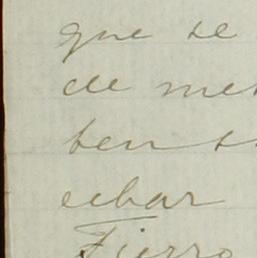 que se
de me
ten
echar
Fierro